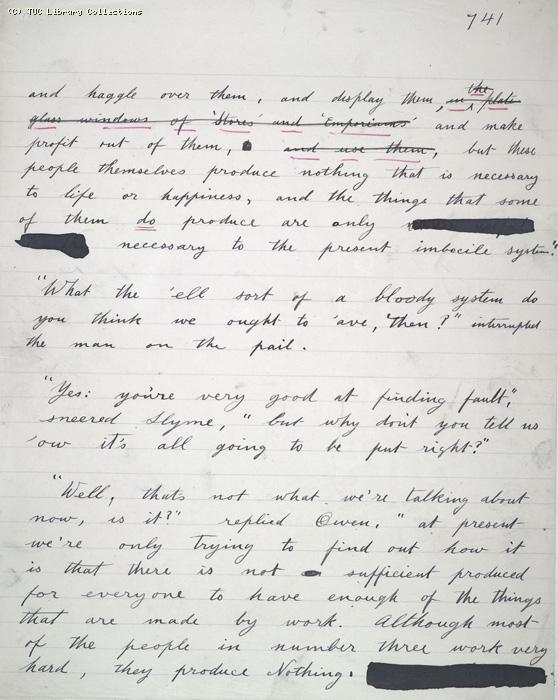 (C) TUC Library Collections
741
and haggle over them, and display them, in the plate
glass windows of 'Stores' and 'Emporiums' and make
profit out of them, and use them, but these
people themselves produce nothing that is necessary
to life or happiness, and the things that some
of them do produce are only
necessary to the present imbecile system."
"What the 'ell sort of a bloody system do
you think we ought to 'ave, then?" interrupted
the man on the pail.
"Yes: you're very good at finding fault",
sneered Slyme, "but why don't you tell us
'ow it's all going to be put right?"
"Well, thats not what we're talking about
now, is it?" replied Owen, "at present
we're only trying to find out how it
is that there is not sufficient produced
for everyone to have enough of the things
that are made by work. Although most
of the people in number three work very
hard, they produce Nothing.